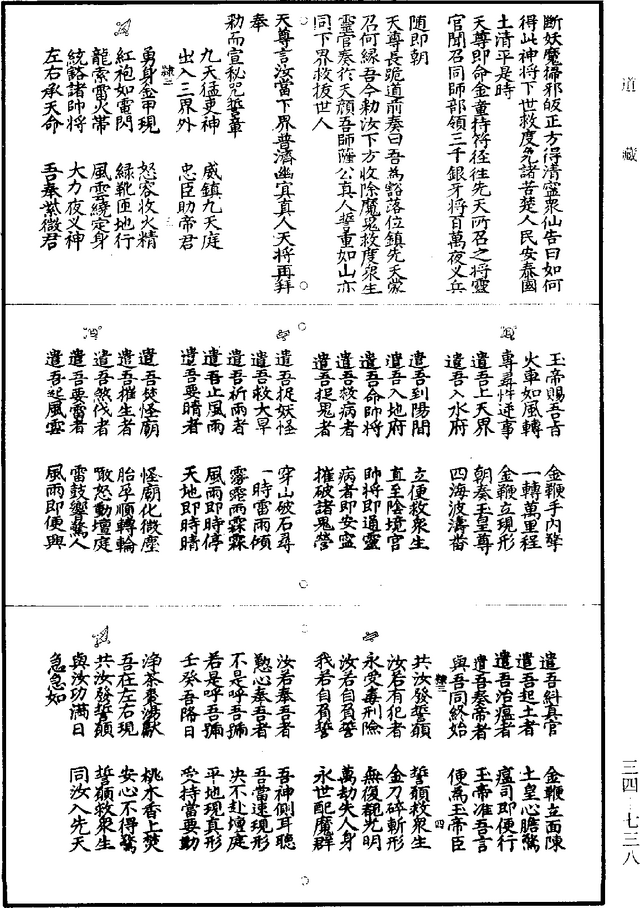 道藏
斷妖魔掃邪皈正方得清寧衆仙告曰如何
得此神將下世救度免諸苦楚人民安泰國
土清平是時
天尊即命金童持符徑往先天所召之將靈
官聞召同師部領三千銀牙將百萬夜义兵
隨即朝
天尊長跪道前奏曰吾為豁落位鎮先天蒙
召何緣吾今勑汝下方收除魔鬼救度衆生
靈官奏符天顔吾師薩公真人誓重如山亦
同下界救拔世人
天尊言汝當下界普濟幽冥真人天將再拜
奉
勑而宣秘咒誓章
九天猛吏神　威鎮九天庭
出入三界外　忠臣助帝君
勇身金甲現　怒容收火精
紅袍如電閃　綠靴匝地行
龍索雷火帶　風雲繞定身
統轄諸帥將　大力夜义神
左右承天命　吾奉紫微君
玉帝賜吾旨　金鞭手內擎
火車如風轉　一轉萬里程
專尋忤逆事　金鞭立現形
遣吾上天界　朝奏玉皇尊
遣吾入水府　四海波濤番
遣吾到陽間　立便救衆生
遣吾入地府　直至陰境官
遣吾命帥將　帥將即通靈
遣吾救病者　病者即安寧
遣吾捉鬼者　摧破諸鬼營
遣吾捉妖怪　穿山破石尋
遣吾救大旱　一時雷雨傾
遣吾祈雨者　霧露雨霖霖
遣吾止風雨　風雨即時停
遣吾要晴者　天地即時晴
遣吾焚怪廟　怪廟化微塵
遣吾摧生者　胎孕順轉輪
遣吾煞伐者　嗷怒動壇庭
遣吾要雷者　雷鼓響驚人
遣吾起風雲　風雨即便興
遣吾糾真官　金鞭立面陳
遣吾起土者　土皇心膽驚
遣吾治瘟者　瘟司即便行
遣吾奏帝者　玉帝准吾言
與吾同終始　便為玉帝臣
共汝發誓願　誓願救衆生
汝若有犯者　金刀碎斬形
永受毒刑險　無復覩光明
汝若自負誓　萬劫失人身
我若自負誓　永世配魔群
汝若奉吾者　吾神側耳聽
懃心奉吾者　吾當速現形
不是呼吾號　决不赴壇庭
若是呼吾號　平地現真形
壬癸吾降日　受持當要勤
淨茶棗湯獻　桃水香上焚
吾在左右現　安心不得驚
共汝發誓願　誓願救衆生
與汝功滿日　同汝入先天
急急如
三四·七三八